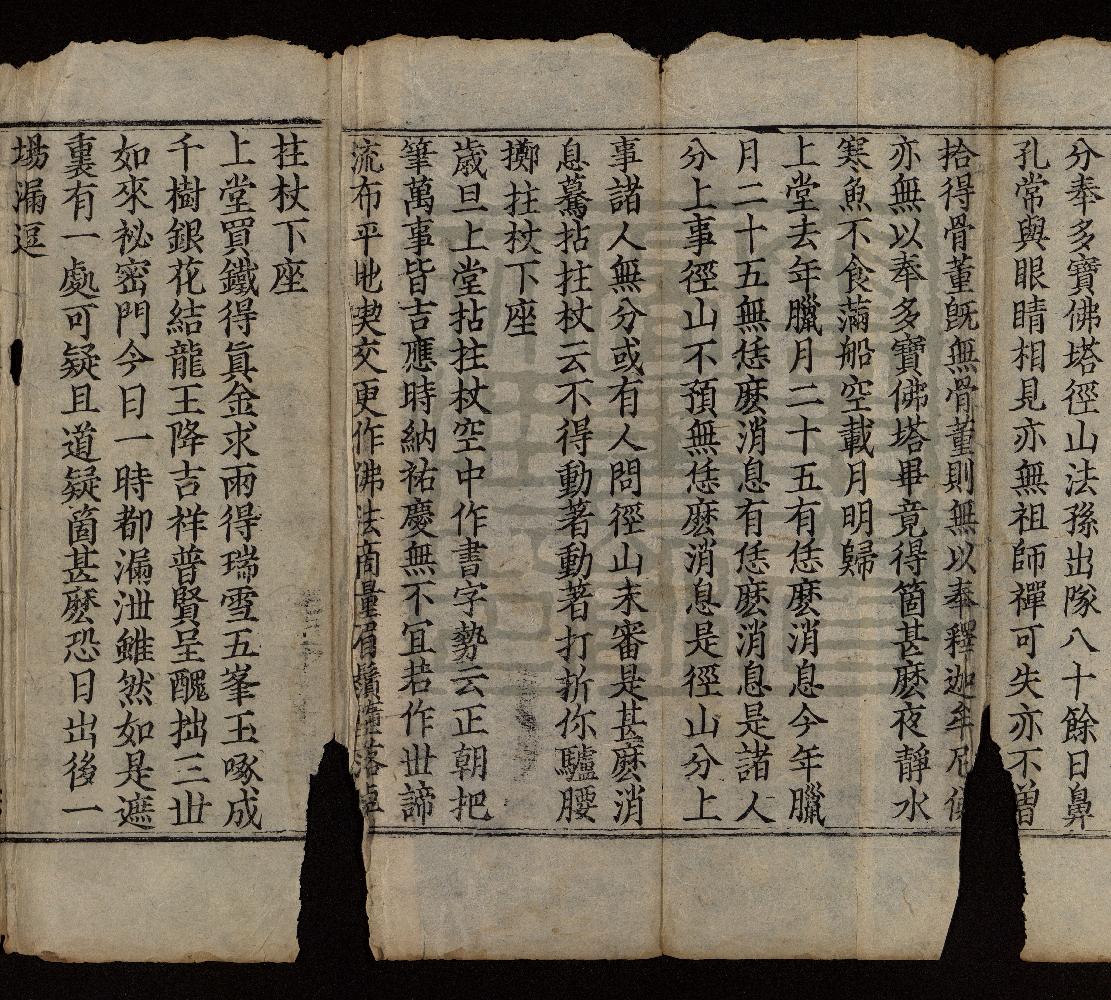 分奉多寶佛塔徑山法孫出隊八十餘日鼻
孔常與眼睛相見亦無祖師禪可失亦不曽
拾得骨董既無骨董則無以奉釋迦牟尼佛
亦無以奉多寶佛塔畢竟得箇甚麽夜靜水
寒魚不食滿船空載月明歸
上堂去年臘月二十五有恁麽消息今年臘
月二十五無恁麽消息有恁麽消息是諸人
分上事徑山不預無恁麽消息是徑山分上
事諸人無分或有人問徑山未審是甚麽消
息驀拈拄杖云不得動著動著打折你驢腰
擲拄杖下座
歲旦上堂拈拄杖空中作書字勢云正朝把
筆萬事皆吉應時納祐慶無不冝若作世諦
流布平地喫交更作佛法商量眉鬚墮落卓
拄杖下座
上堂買鐵得眞金求雨得瑞雪五峯玉啄成
千樹銀花結龍王降吉祥普賢呈醜拙三世
如來祕密門今日一時都漏泄雖然如是遮
裏有一處可疑且道疑箇甚麽恐日出後一
場漏逗